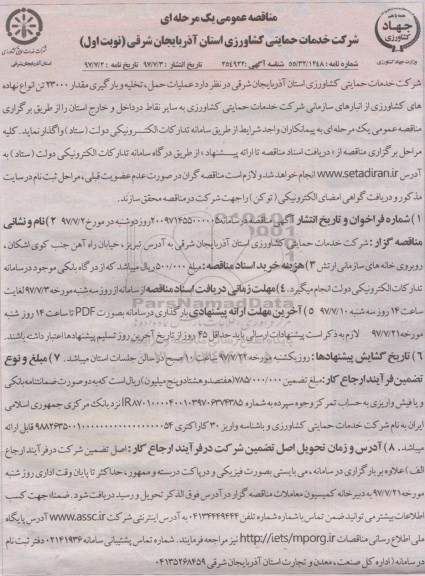 مناقصه عمومی یک مرحله ای
شرکت خدمات حمایتی کشاورزی استان آذربایجان شرقی (نوبت اول)
شماره نامه: ۵۵/۳۲/۱۲۴۸ شناسه آگهی: ۲۵۴۹۲۲ تاریخ انتشار: ۹۷/۷/۳ تاریخ نامه: ۹۷/۷/۲
جهاد کشاورزی
وزارت جهاد کشاورزی
شرکت خدمات حمایتی کشاورزی
استان آذربایجان شرقی
شرکت خدمات حمایتی کشاورزی استان آذربایجان شرقی در نظر دارد عملیات حمل، تخلیه و بارگیری مقدار ۲۳۰۰۰ تن انواع نهاده
های کشاورزی از انبارهای سازمانی شرکت خدمات حمایتی کشاورزی به سایر نقاط درداخل و خارج استان را از طریق برگزاری
مناقصه عمومی یک مرحله ای به پیمانکاران واجد شرایط از طریق سامانه تدارکات الکترونیکی دولت (ستاد) واگذار نماید. کلیه
مراحل برگزاری مناقصه از «دریافت اسناد مناقصه تا ارائه پیشنهاد» از طریق درگاه سامانه تدارکات الکترونیکی دولت (ستاد) به
آدرس www.setadiran.ir انجام خواهد شد و لازم است مناقصه گران در صورت عدم عضویت قبلی، مراحل ثبت نام در سایت
مذکور و دریافت گواهی امضای الکترونیکی (توکن) را جهت شرکت در مناقصه محقق سازند.
۱) شماره فراخوان و تاریخ انتشار آگهی مناقصه در سامانه: ۲۰۰۹۷۱۴۵۵۰۰۰۰۰۵ روز دوشنبه در مورخ ۹۷/۷/۲ ۲) نام و نشانی
مناقصه گزار: شرکت خدمات حمایتی کشاورزی استان آذربایجان شرقی به آدرس تبریز، خیابان راه آهن جنب کوی اشکان،
روبروی خانه های سازمانی ارتش ۳) هزینه خرید اسناد مناقصه: مبلغ ۵۰۰/۰۰۰ ریال میباشد که از درگاه بانکی موجود در سامانه
تدارکات الکترونیکی دولت انجام میگیرد. ۴) مهلت زمانی دریافت اسناد مناقصه از سامانه از روز سه شنبه مورخه ۹۷/۷/۳ لغایت
ساعت ۱۴ روز سه شنبه ۹۷/۷/۱۰ ۵) آخرین مهلت ارائه پیشنهادی بارگذاری در سامانه بصورت PDF تا ساعت ۱۴ روز شنبه
مورخه ۹۷/۷/۲۱ لازم به ذکر است پیشنهادات ارسالی باید حداقل ۴۵ روز از تاریخ آخرین روز تسلیم پیشنهادها اعتبار داشته باشند.
۶) تاریخ گشایش پیشنهادها: روز یکشنبه مورخه ۹۷/۷/۲۲ ساعت ۱۰ صبح در سالن جلسات استان میباشد. ۷) مبلغ و نوع
تضمین فرآیند ارجاع کار: مبلغ تضمین ۷۸۵/۰۰۰/۰۰۰ (هفتصد و هشتاد و پنج میلیون) ریال است که به دو صورت ضمانتنامه بانکی
و یا فیش واریزی به حساب تمرکز وجوه سپرده به شماره نزد بانک مرکزی جمهوری اسلامی
ایران به نام شرکت خدمات حمایتی کشاورزی و باشناسه واریز ۳۰ کاراکتری قابل ارائه
میباشد. ۸) آدرس و زمان تحویل اصل تضمین شرکت در فرآیند ارجاع کار: اصل تضمین شرکت در فرآیند ارجاع
الف) علاوه بر بارگزاری در سامانه، می بایستی بصورت فیزیکی و در پاکت دربسته و ممهور، حداکثر تا پایان وقت اداری روز شنبه
مورخه ۹۷/۷/۲۱ به دبیرخانه کمیسیون معاملات مناقصه گزار در آدرس فوق الذکر تحویل و رسید دریافت شود. ضمنا: جهت کسب
اطلاعات بیشتر می توانید ضمن تماس با شماره تلفن ۰۴۱۳۴۴۴۹۴۴۴ به آدرس اینترنتی شرکت www.assc.ir وآدرس پایگاه
ملی اطلاع رسانی مناقصات http://iets/mporg.ir نیز مراجعه فرمایند. شماره تماس پشتیبانی سامانه ۰۲۱۴۱۹۳۶ دفتر ثبت نام
در سامانه (اداره کل صنعت، معدن و تجارت استان آذربایجان شرقی ۰۴۱۳۵۲۶۸۴۵۹)
ParsNamadData